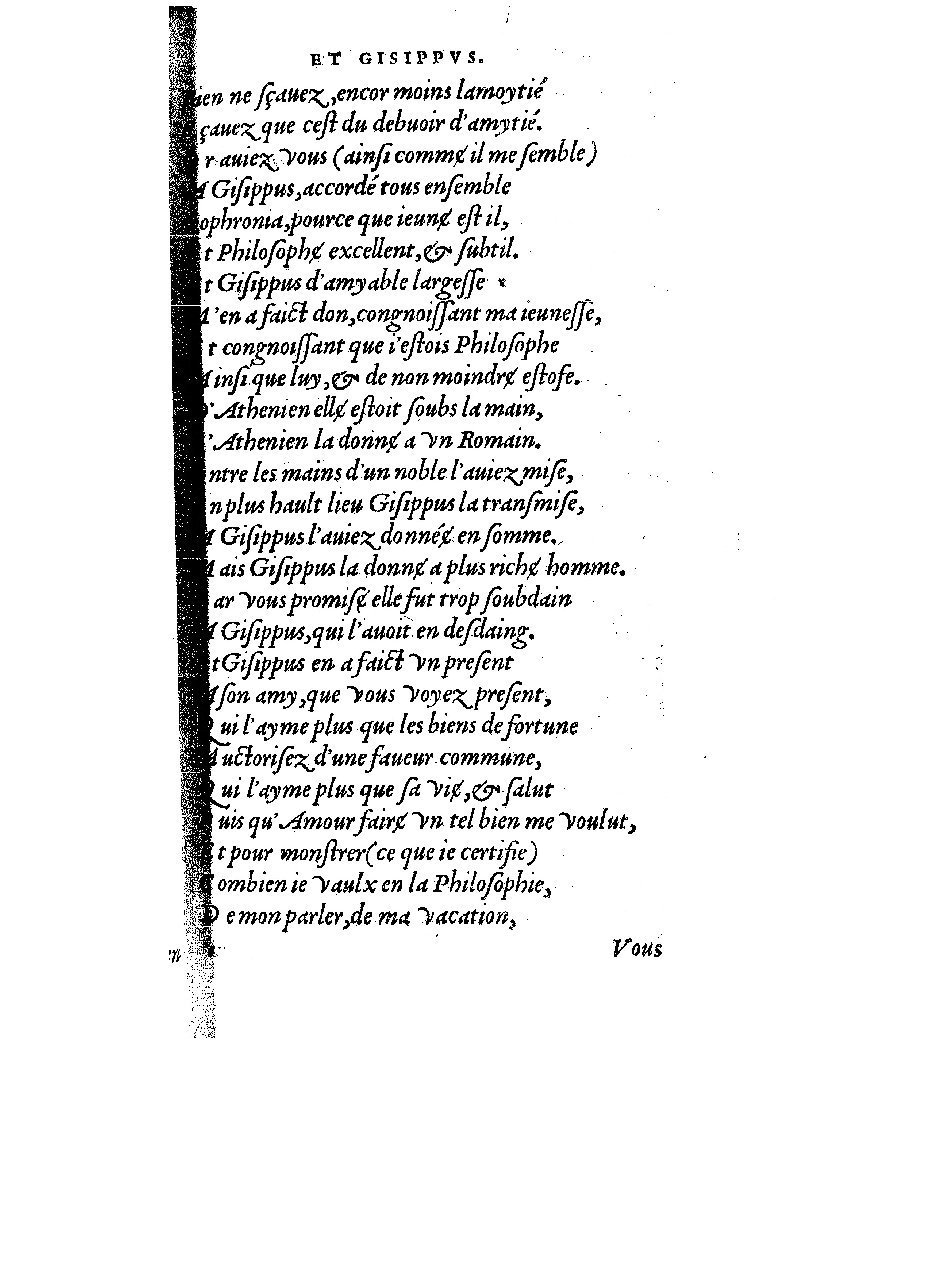 ET GISIPPVS.
ien ne ſçauez, encor moins lamoytié
çauez que ceſt du debuoir d'amytié.
r auiez vous (ainſi commɇ il me ſemble)
A Giſippus, accordé tous enſemble
ophronia, pource que ieunɇ eſt il,
t Philoſophɇ excellent, & ſubtil.
t Giſippus d'amyable largeſſe
M'en a faict don, congnoiſſant ma ieuneſſe,
t congnoiſſant que i'eſtois Philoſophe
Ainſi que luy, & de non moindrɇ eſtofe.
D'Athenien ellɇ eſtoit ſoubs la main,
'Athenien la donnɇ a vn Romain.
ntre les mains d'un noble l'auiez miſe,
n plus hault lieu Giſippus la tranſmiſe,
A Giſippus l'auiez donnéɇ en ſomme.
Mais Giſippus la donnɇ a plus richɇ homme.
ar vous promiſɇ elle fut trop ſoubdain
A Giſippus, qui l'auoit en deſdaing.
t Giſippus en a faict vn preſent
A ſon amy, que vous voyez preſent,
Qui l'ayme plus que les biens de fortune
Auctoriſez d'une faueur commune,
Qui l'ayme plus que ſa viɇ, & ſalut
uis qu'Amour fairɇ vn tel bien me voulut,
Et pour monſtrer (ce que ie certifie)
Combien ie vaulx en la Philoſophie,
De mon parler, de ma vacation,
Vous